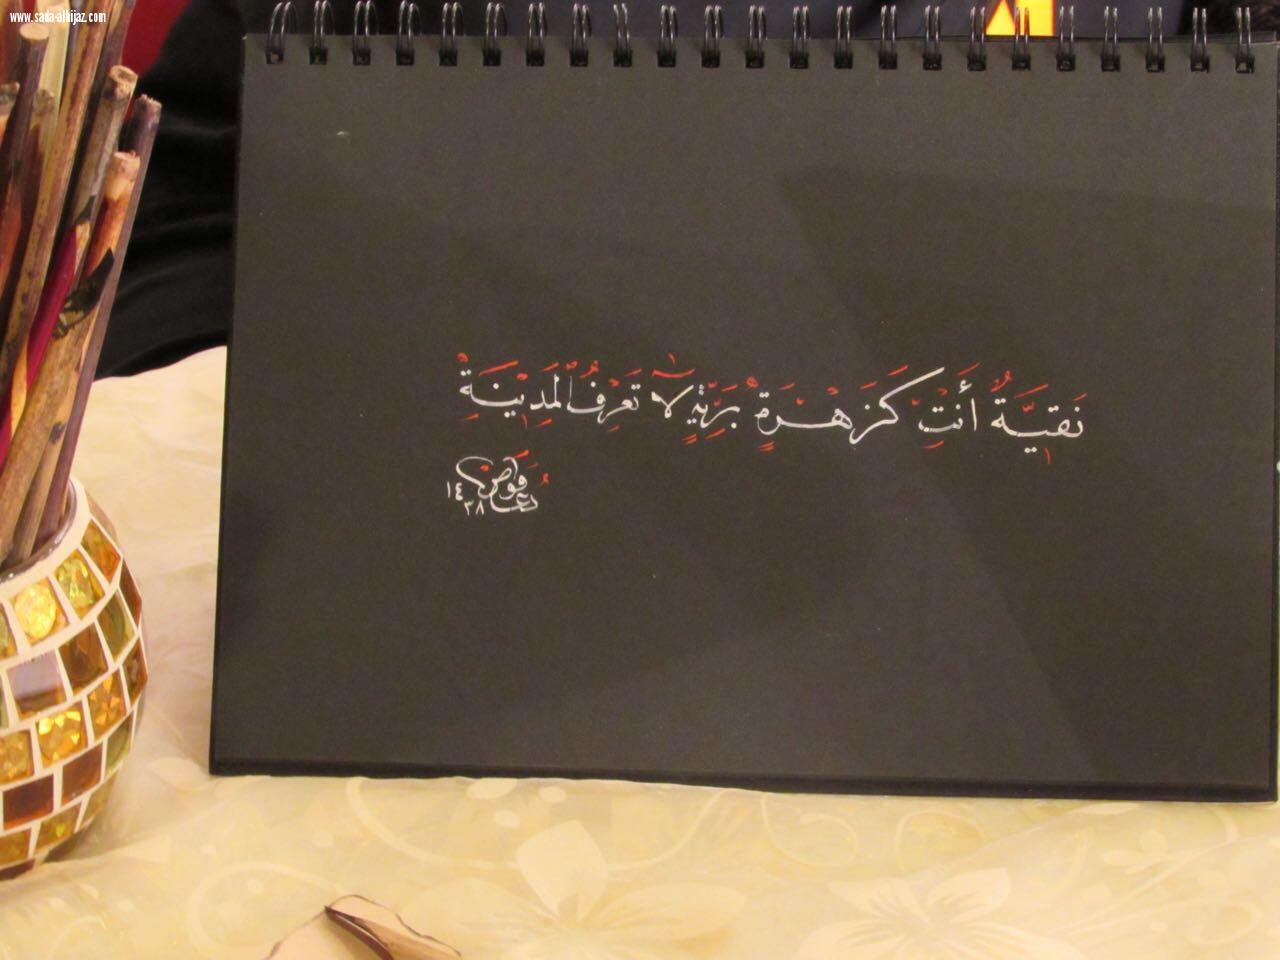 www.sada-alhijaz.com
نَقيَّةٌ أَنتِ كَزَهْرَةٍ بَرِّيَّةٍ لَا تَعرِفُ المَدِينَةْ
دعاء
١٤٣٨